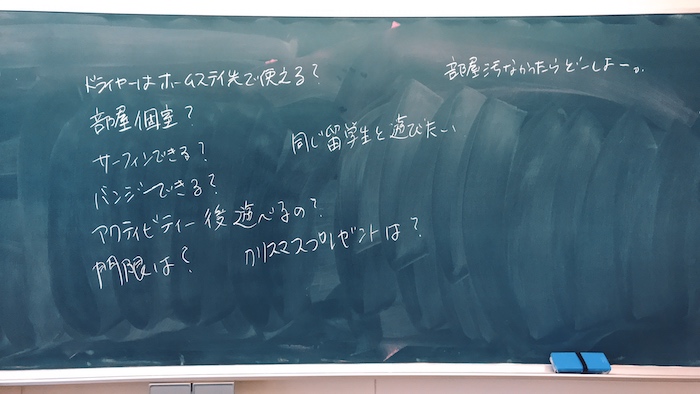 ドライヤーはホームステイ先で使える？
部屋個室？
サーフィンできる？
バンジーできる？
アクティビティー後遊べるの？
門限は？
同じ留学生と遊びたい
クリスマスプレゼントは？
部屋汚なかったらどーしよー。